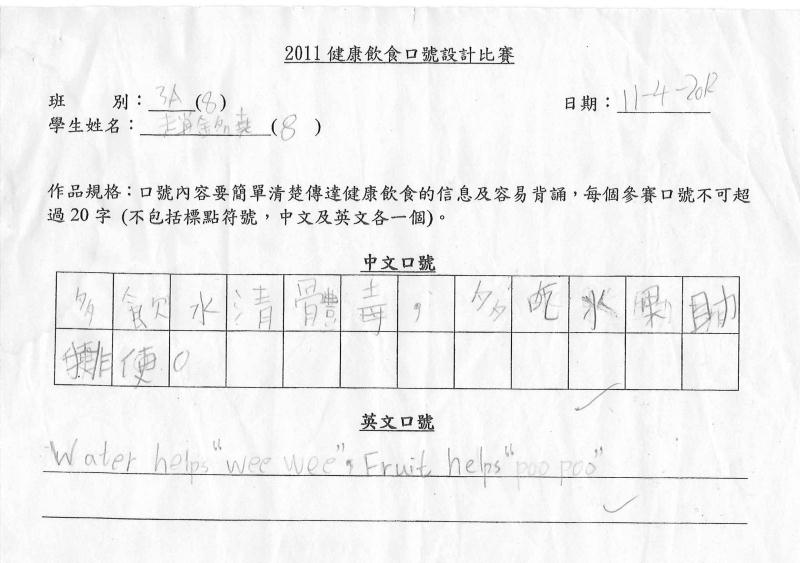 2011 健康飲食口號設計比賽
班 別：3A(8)
日期：11-4-2012
學生姓名：(8)
作品規格：口號內容要簡單清楚傳達健康飲食的信息及容易背誦，每個參賽口號不可超
過 20 字 (不包括標點符號，中文及英文各一個)。
中文口號
多飲水清體毒，多吃水果助
排便。
英文口號
Water helps "wee wee", Fruit helps "poo poo"